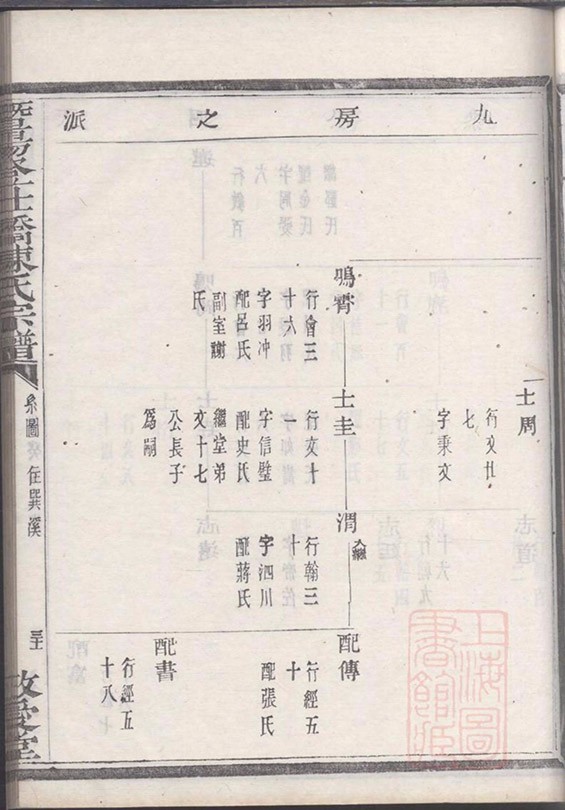 九房之派
士周
行文廿
七
字秉文
鳴霄
行會三
十六
字羽冲
配呂氏
副室謝
氏
士圭
行文十
字信璧
配史氏
繼堂弟
文十七
公長子
爲嗣
渭
入繼
行翰三
十
字泗川
配蔣氏
配傳
行經五
十
配張氏
配書
行經五
十八
橋陳氏宗譜
系圖
住巽溪
敬愛堂
上海圖書館藏